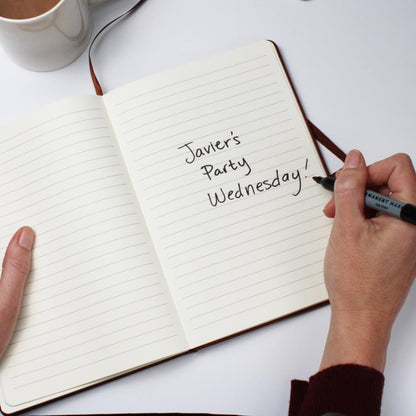 Javier's
Party
Wednesday!
PERMANENT MARKER